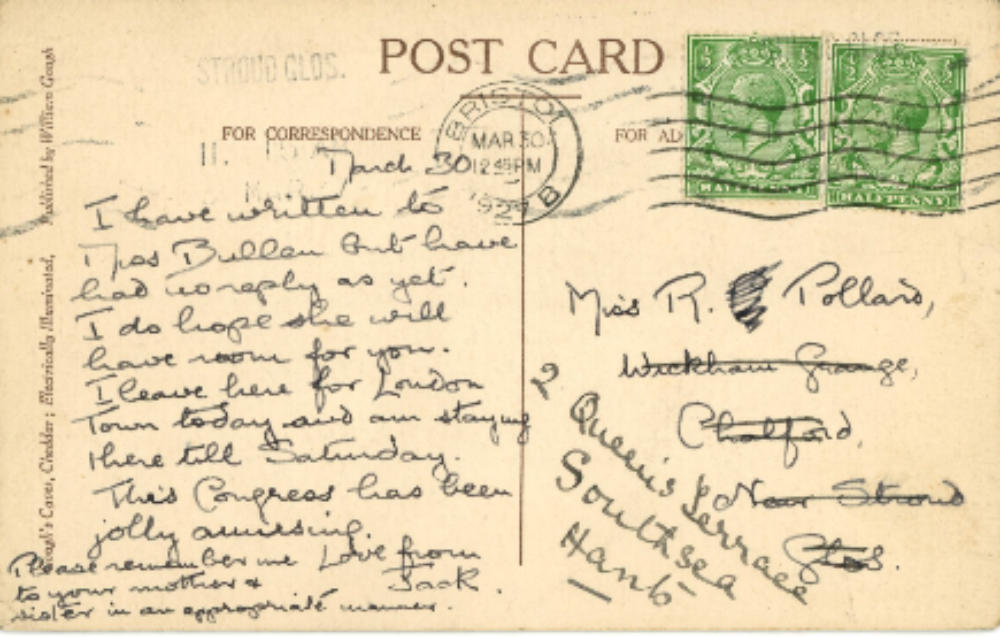 POST CARD
STROUD GLOS.
FOR CORRESPONDENCE
FOR AD
BRISTOL
MAR 30
12 45 PM
1927
B
HALFPENNY
HALFPENNY
Gough's Caves, Cheddar; Electrically Illuminated, Published by William Gough
March 30
I have written to
Miss Bullen but have
had no reply as yet.
I do hope she will
have room for you.
I leave here for London
Town today and am staying
there till Saturday.
This Congress has been
jolly amusing.
Please remember me
to your mother &
sister in an appropriate manner.
Love from
Jack.
Miss R. Pollard,
Wickham Grange,
Chalford,
Near Stroud
Glos.
2 Queen's Terrace
Southsea
Hants